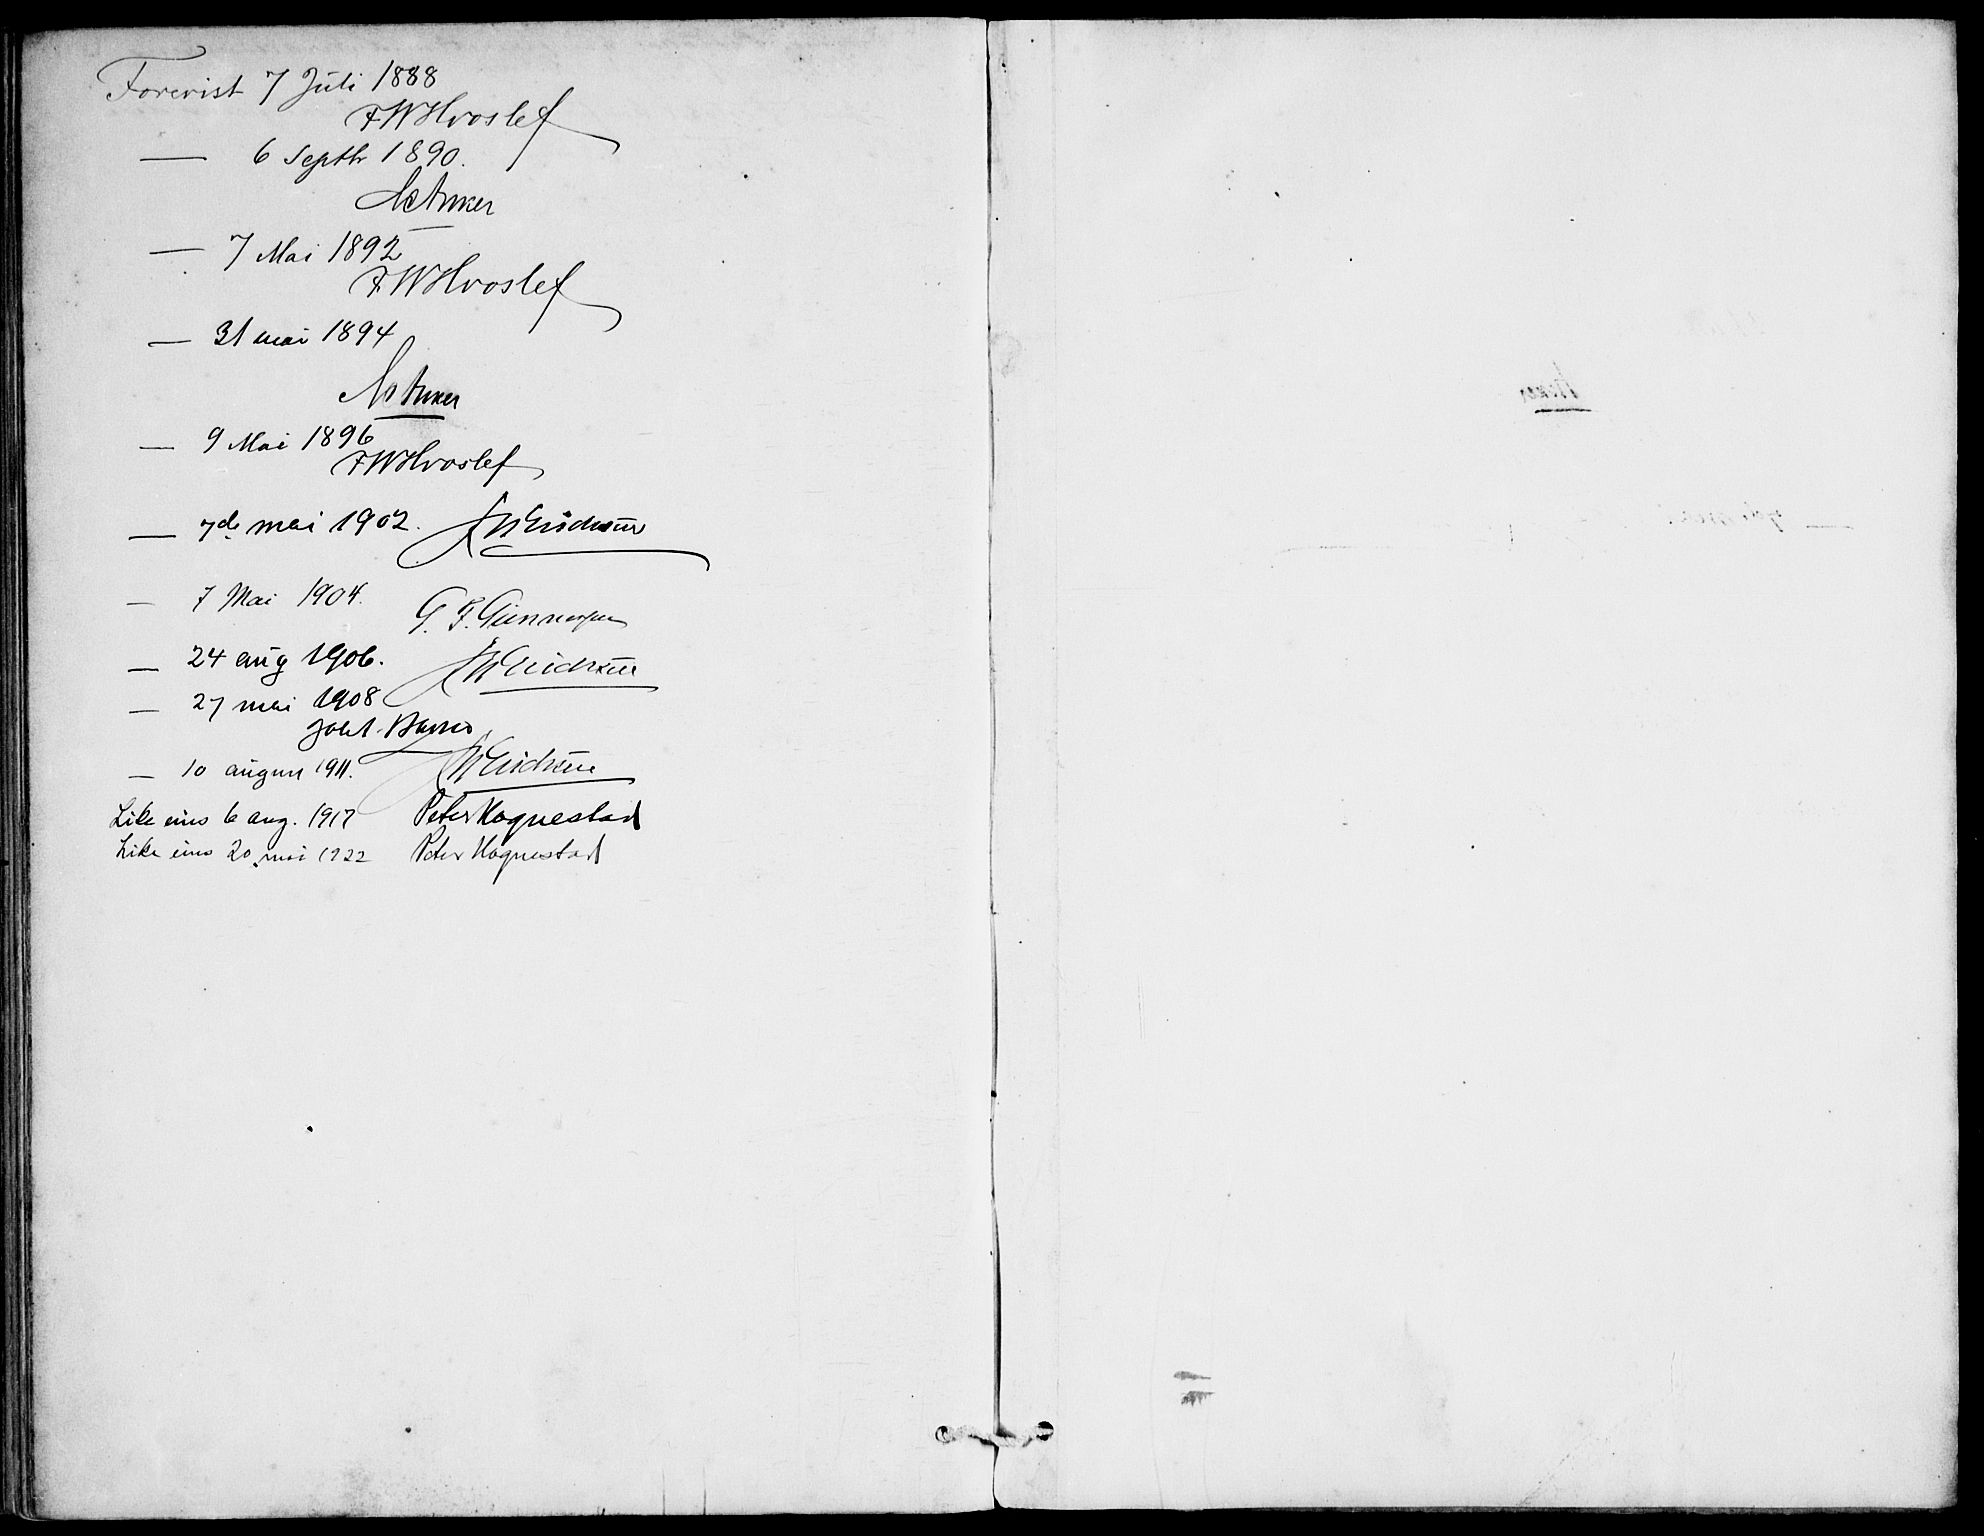 Forevist 7 Juli 1888
FWHvoslef
— 6 Septbr 1890.
Anker
— 7 Mai 1892
FWHvoslef
— 31 mai 1894
Anker
— 9 Mai 1896
FWHvoslef
— 7de mai 1902.
— 7 Mai 1904. G. F. Gunnersen
— 24 aug 1906.
— 27 mai 1908
— 10 august 1911.
Like eins 6 aug. 1917 Peter Hognestad
Like eins 20 mai 1922 Peter Hognestad